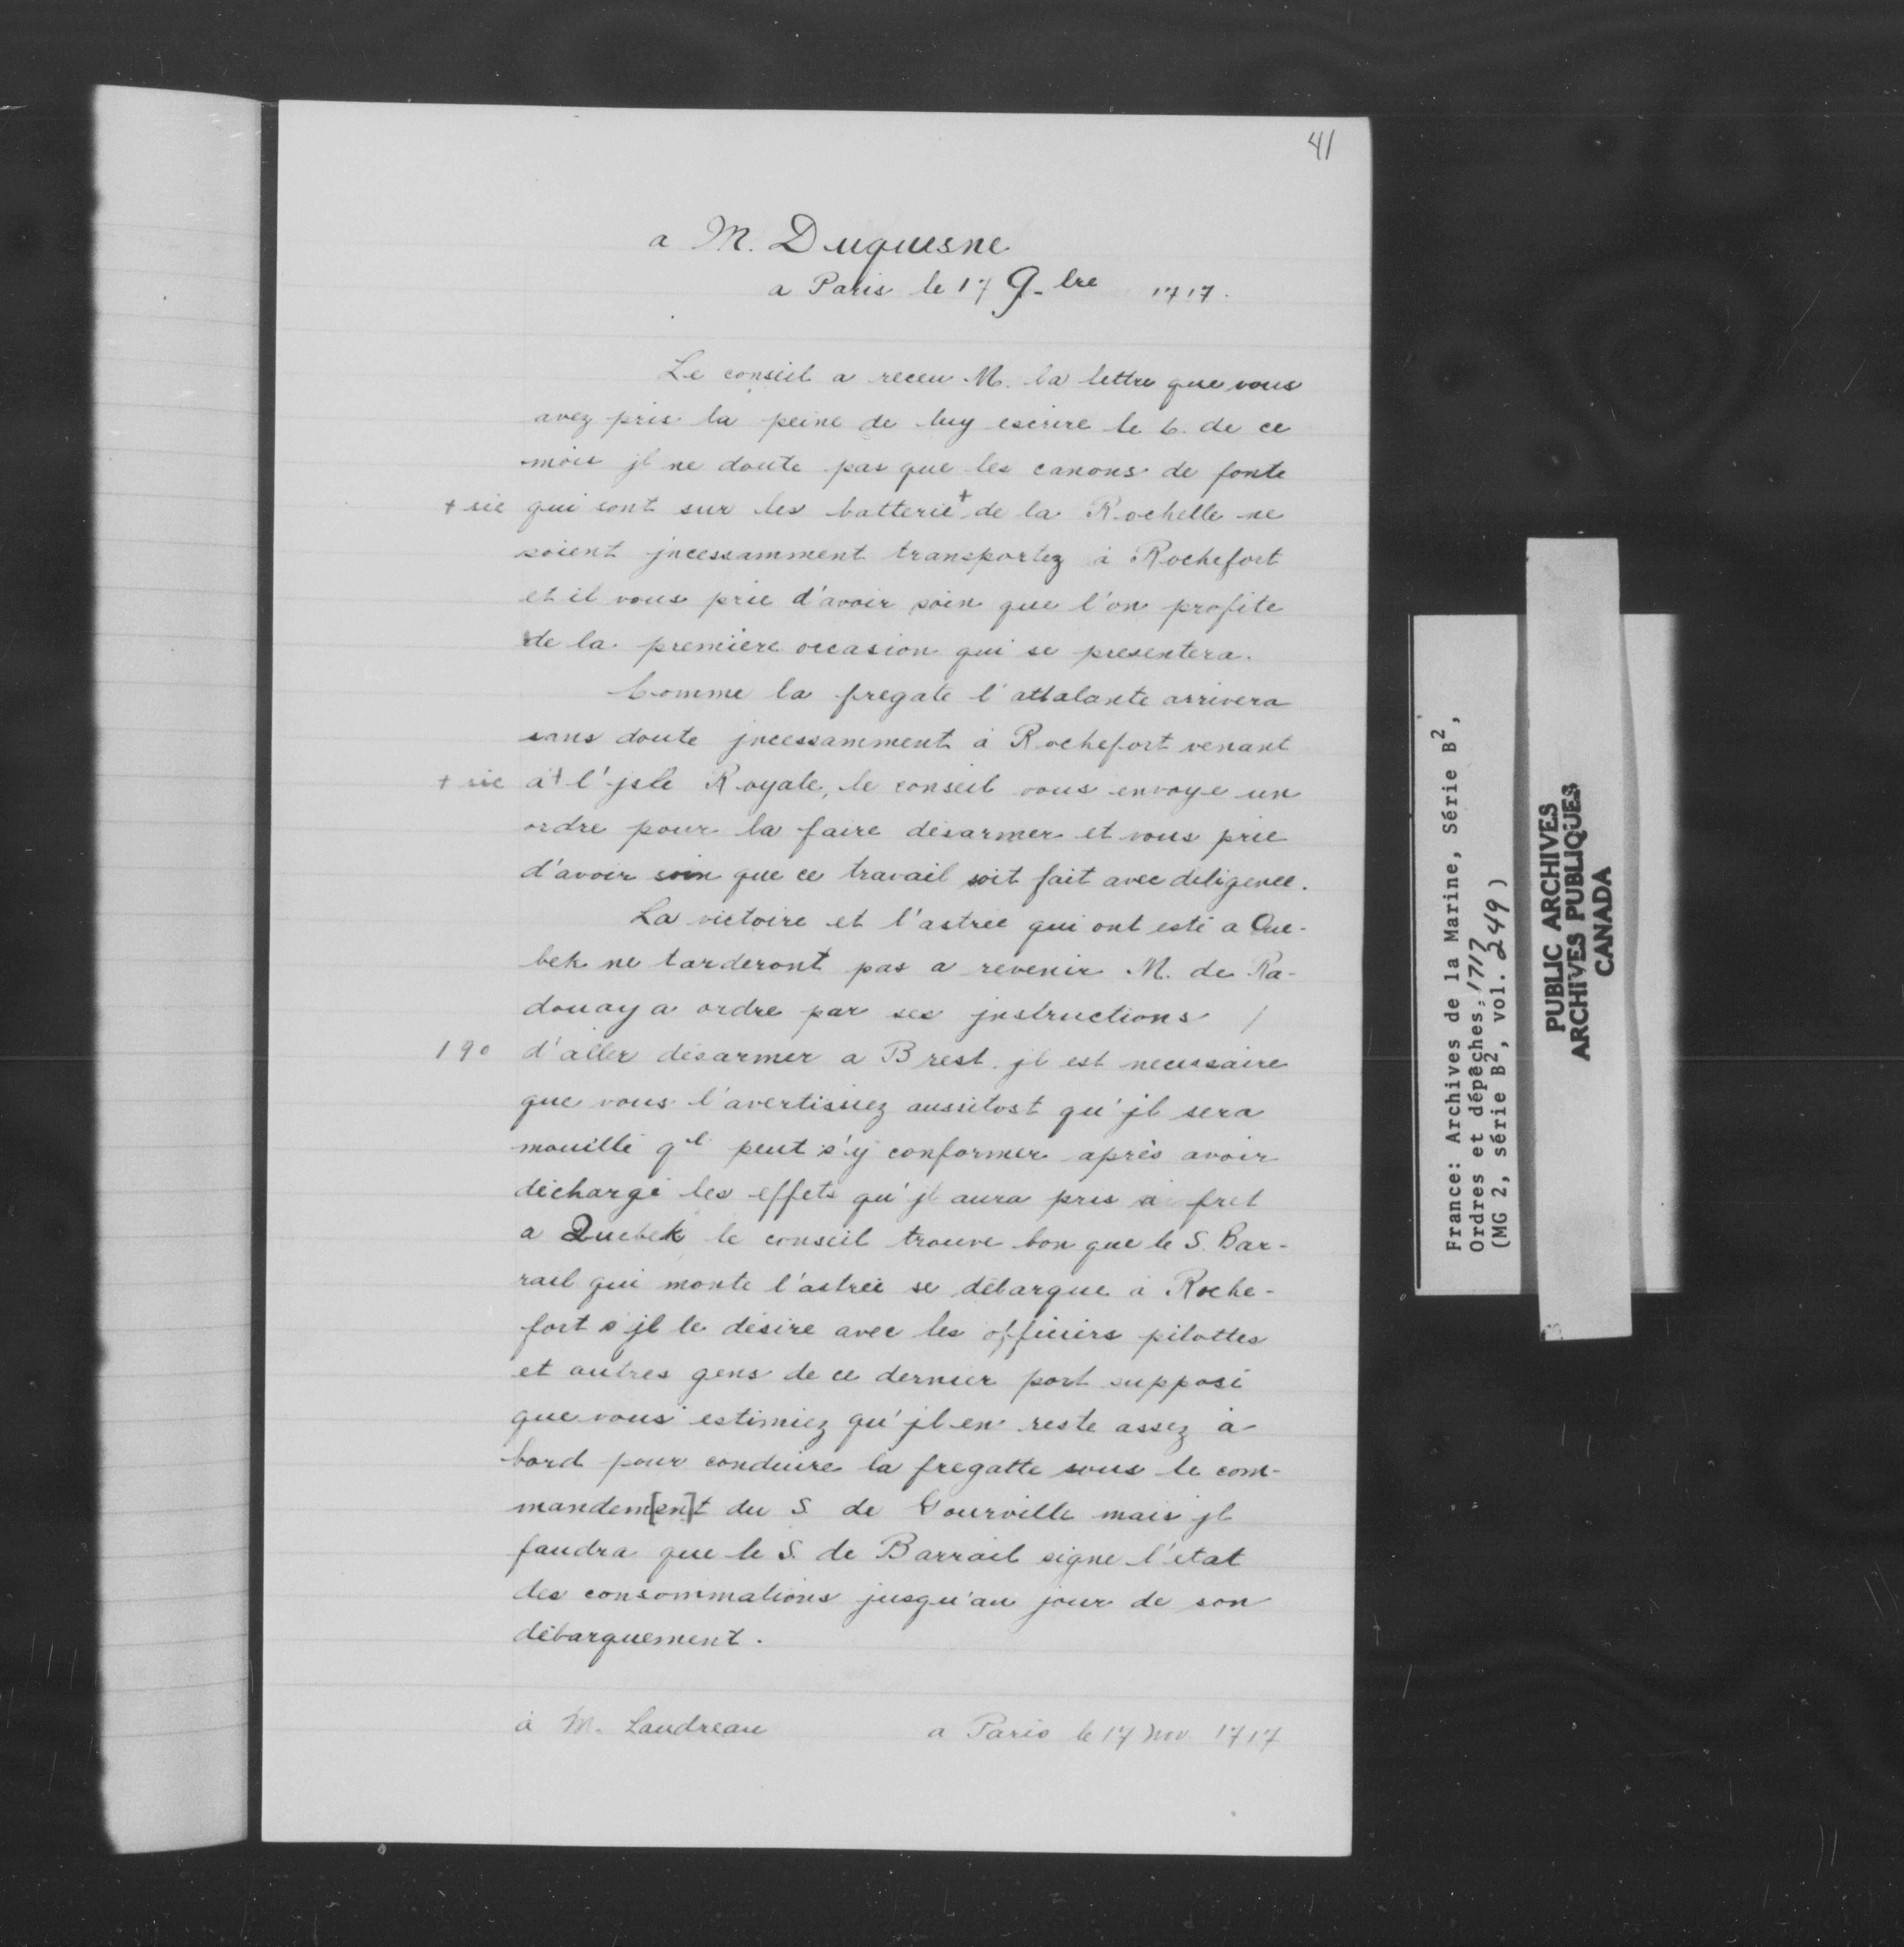 41
a M. Duquesne
a Paris le 17 9-bre 1717.
Le conseil a receu M. la lettre que vous
avez pris la peine de luy escrire le 6. de ce
mois jl ne doute pas que les canons de fonte
+ sic qui sont sur les batterie + de la Rochelle ne
soient jncessamment transportez à Rochefort
et il vous prie d'avoir soin que l'on profite
de la premiere occasion qui se presentera.
Comme la fregate l'attalante arrivera
sans doute jncessamment à Rochefort venant
+ sic a + l'jsle Royale, le conseil vous envoye un
ordre pour la faire désarmer et vous prie
d'avoir soin que ce travail soit fait avec diligence.
La victoire et l'astrée qui ont esté a Que-
bek ne tarderont pas a revenir M. de Ra-
douay a ordre par ses jnstructions /
190 d'aller désarmer a Brest. jl est necessaire
que vous l'avertissiez aussitost qu'jl sera
mouillé ql peut s'y conformer après avoir
déchargé les effets qu'jl aura pris a fret
a Quebek le conseil trouve bon que le S. Bar-
rail qui monte l'astrée se débarque à Roche-
fort s'jl le désire avec les officiers pilottes
et autres gens de ce dernier port supposé
que vous estimiez qu'jl en reste assez à
bord pour conduire la fregatte sous le com-
mandem[en]t du S. de Gourville mais jl
faudra que le S. de Barrail signe l'etat
des consommations jusqu'au jour de son
débarquement.
à M. Landreau a Paris le 17 nov 1717
France: Archives de la Marine, Série B2,
Ordres et dépêches, 1717
(MG 2, série B2, vol. 249)
PUBLIC ARCHIVES
ARCHIVES PUBLIQUES
CANADA